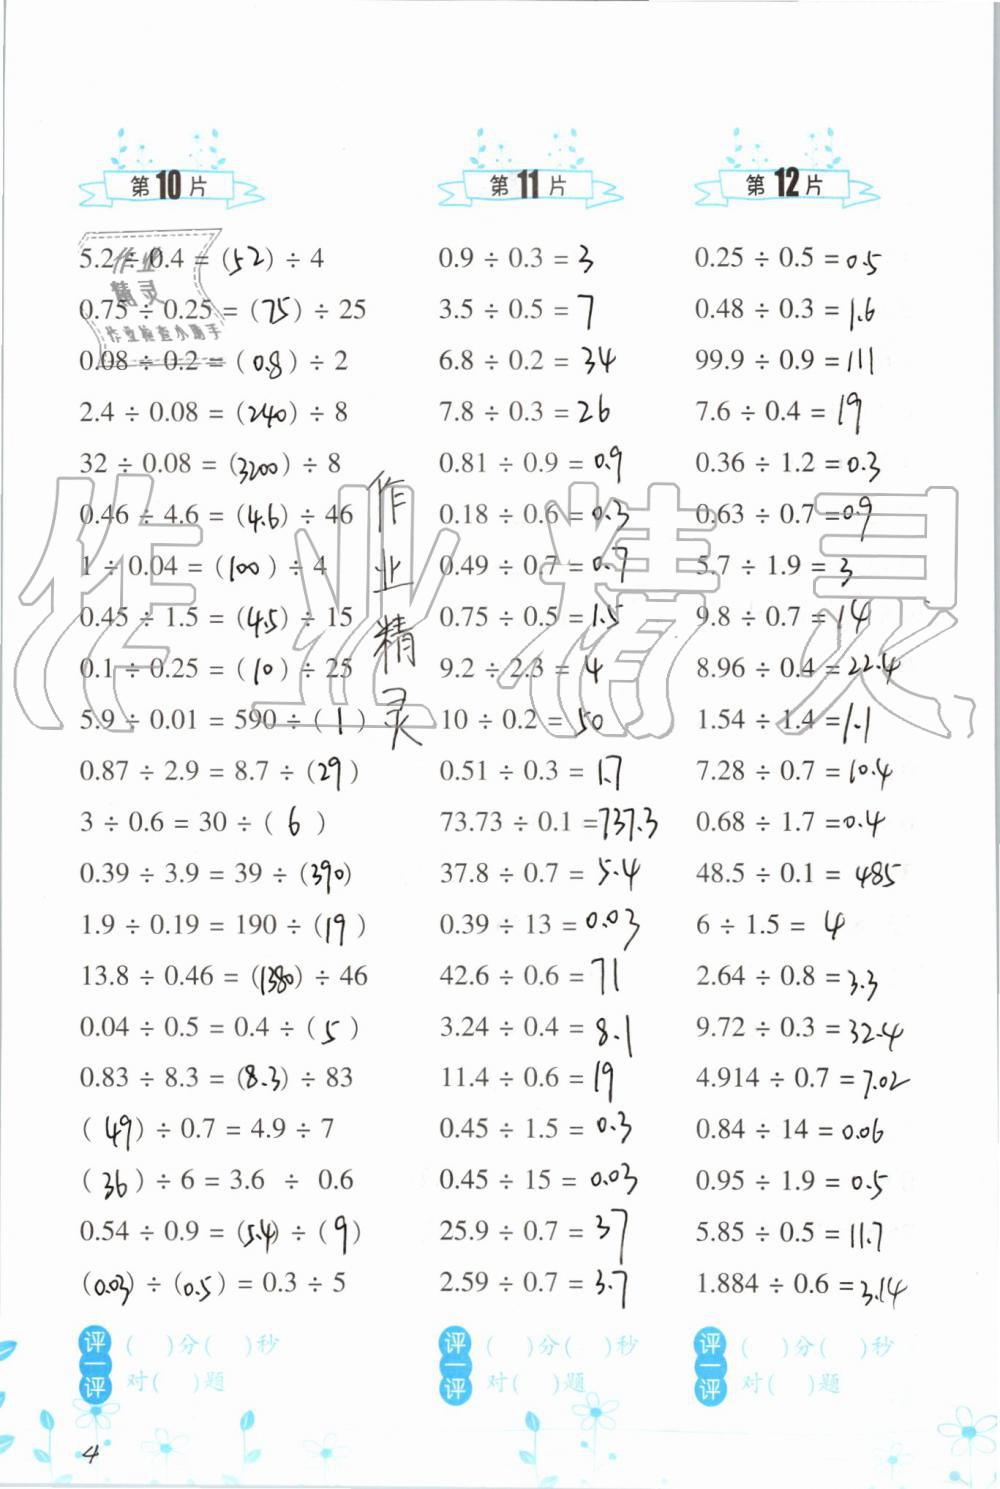 第10片
5.2 ÷ 0.4 = (52) ÷ 4
0.75 ÷ 0.25 = (75) ÷ 25
0.08 ÷ 0.2 = (0.8) ÷ 2
2.4 ÷ 0.08 = (240) ÷ 8
32 ÷ 0.08 = (3200) ÷ 8
0.46 ÷ 4.6 = (4.6) ÷ 46
1 ÷ 0.04 = (100) ÷ 4
0.45 ÷ 1.5 = (4.5) ÷ 15
0.1 ÷ 0.25 = (10) ÷ 25
5.9 ÷ 0.01 = 590 ÷ (1)
0.87 ÷ 2.9 = 8.7 ÷ (29)
3 ÷ 0.6 = 30 ÷ (6)
0.39 ÷ 3.9 = 39 ÷ (390)
1.9 ÷ 0.19 = 190 ÷ (19)
13.8 ÷ 0.46 = (1380) ÷ 46
0.04 ÷ 0.5 = 0.4 ÷ (5)
0.83 ÷ 8.3 = (8.3) ÷ 83
(49) ÷ 0.7 = 4.9 ÷ 7
(36) ÷ 6 = 3.6 ÷ 0.6
0.54 ÷ 0.9 = (5.4) ÷ (9)
(0.03) ÷ (0.5) = 0.3 ÷ 5
评一评
( )分( )秒
对( )题
第11片
0.9 ÷ 0.3 = 3
3.5 ÷ 0.5 = 7
6.8 ÷ 0.2 = 34
7.8 ÷ 0.3 = 26
0.81 ÷ 0.9 = 0.9
0.18 ÷ 0.6 = 0.3
0.49 ÷ 0.7 = 0.7
0.75 ÷ 0.5 = 1.5
9.2 ÷ 2.3 = 4
10 ÷ 0.2 = 50
0.51 ÷ 0.3 = 1.7
73.73 ÷ 0.1 = 737.3
37.8 ÷ 0.7 = 5.4
0.39 ÷ 13 = 0.03
42.6 ÷ 0.6 = 71
3.24 ÷ 0.4 = 8.1
11.4 ÷ 0.6 = 19
0.45 ÷ 1.5 = 0.3
0.45 ÷ 15 = 0.03
25.9 ÷ 0.7 = 37
2.59 ÷ 0.7 = 3.7
评一评
( )分( )秒
对( )题
第12片
0.25 ÷ 0.5 = 0.5
0.48 ÷ 0.3 = 1.6
99.9 ÷ 0.9 = 111
7.6 ÷ 0.4 = 19
0.36 ÷ 1.2 = 0.3
0.63 ÷ 0.7 = 0.9
5.7 ÷ 1.9 = 3
9.8 ÷ 0.7 = 14
8.96 ÷ 0.4 = 22.4
1.54 ÷ 1.4 = 1.1
7.28 ÷ 0.7 = 10.4
0.68 ÷ 1.7 = 0.4
48.5 ÷ 0.1 = 485
6 ÷ 1.5 = 4
2.64 ÷ 0.8 = 3.3
9.72 ÷ 0.3 = 32.4
4.914 ÷ 0.7 = 7.02
0.84 ÷ 14 = 0.06
0.95 ÷ 1.9 = 0.5
5.85 ÷ 0.5 = 11.7
1.884 ÷ 0.6 = 3.14
评一评
( )分( )秒
对( )题
作业精灵
作业检查小助手
作业精灵
作业精灵
4